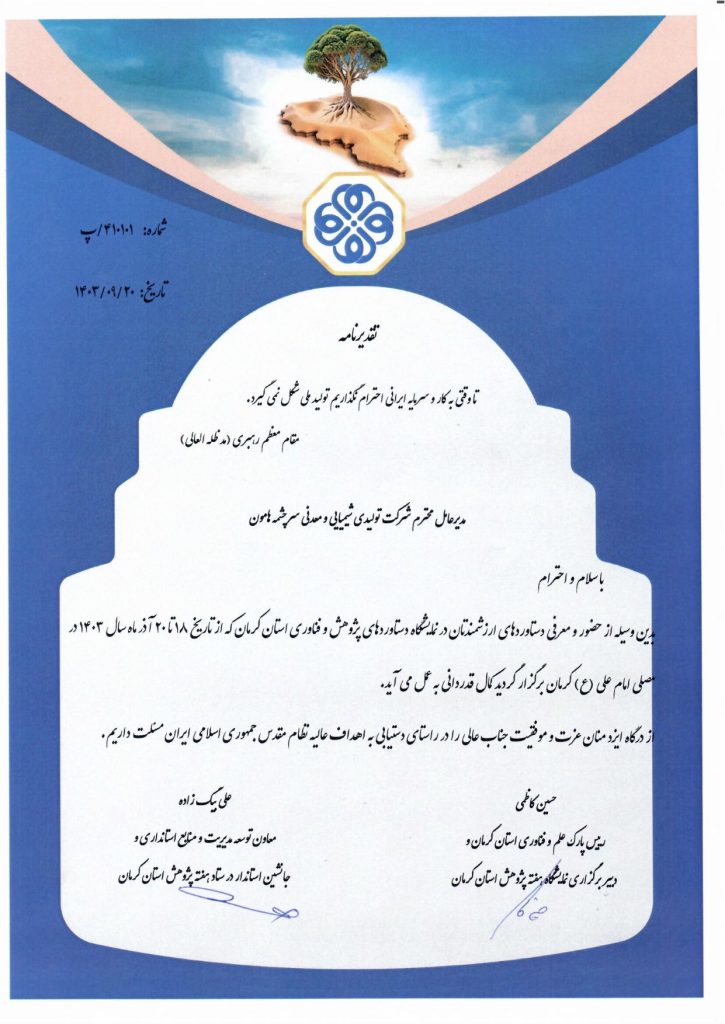 شماره: ۴۱۰۱۰۱/پ
تاریخ: ۱۴۰۳/۰۹/۲۰
تقدیرنامه
تا وقتی به کار و سرمایه ایرانی احترام نگذاریم تولید ملی شکل نمی گیرد.
مقام معظم رهبری (مد ظله العالی)
مدیرعامل محترم شرکت تولیدی شیمیایی و معدنی سرچشمه هامون
با سلام و احترام
بدین وسیله از حضور و معرفی دستاوردهای ارزشمندتان در نمایشگاه دستاوردهای پژوهش و فناوری استان کرمان که از تاریخ ۱۸ تا ۲۰ آذر ماه سال ۱۴۰۳ در
مصلی امام علی (ع) کرمان برگزار گردید کمال قدردانی به عمل می آید.
از درگاه ایزد منان عزت و موفقیت جناب عالی را در راستای دستیابی به اهداف عالیه نظام مقدس جمهوری اسلامی ایران مسئلت داریم.
حسین کاظمی
رییس پارک علم و فناوری استان کرمان و
دبیر برگزاری نمایشگاه هفته پژوهش استان کرمان
علی بیگ زاده
معاون توسعه مدیریت و منابع استانداری و
جانشین استاندار در ستاد هفته پژوهش استان کرمان